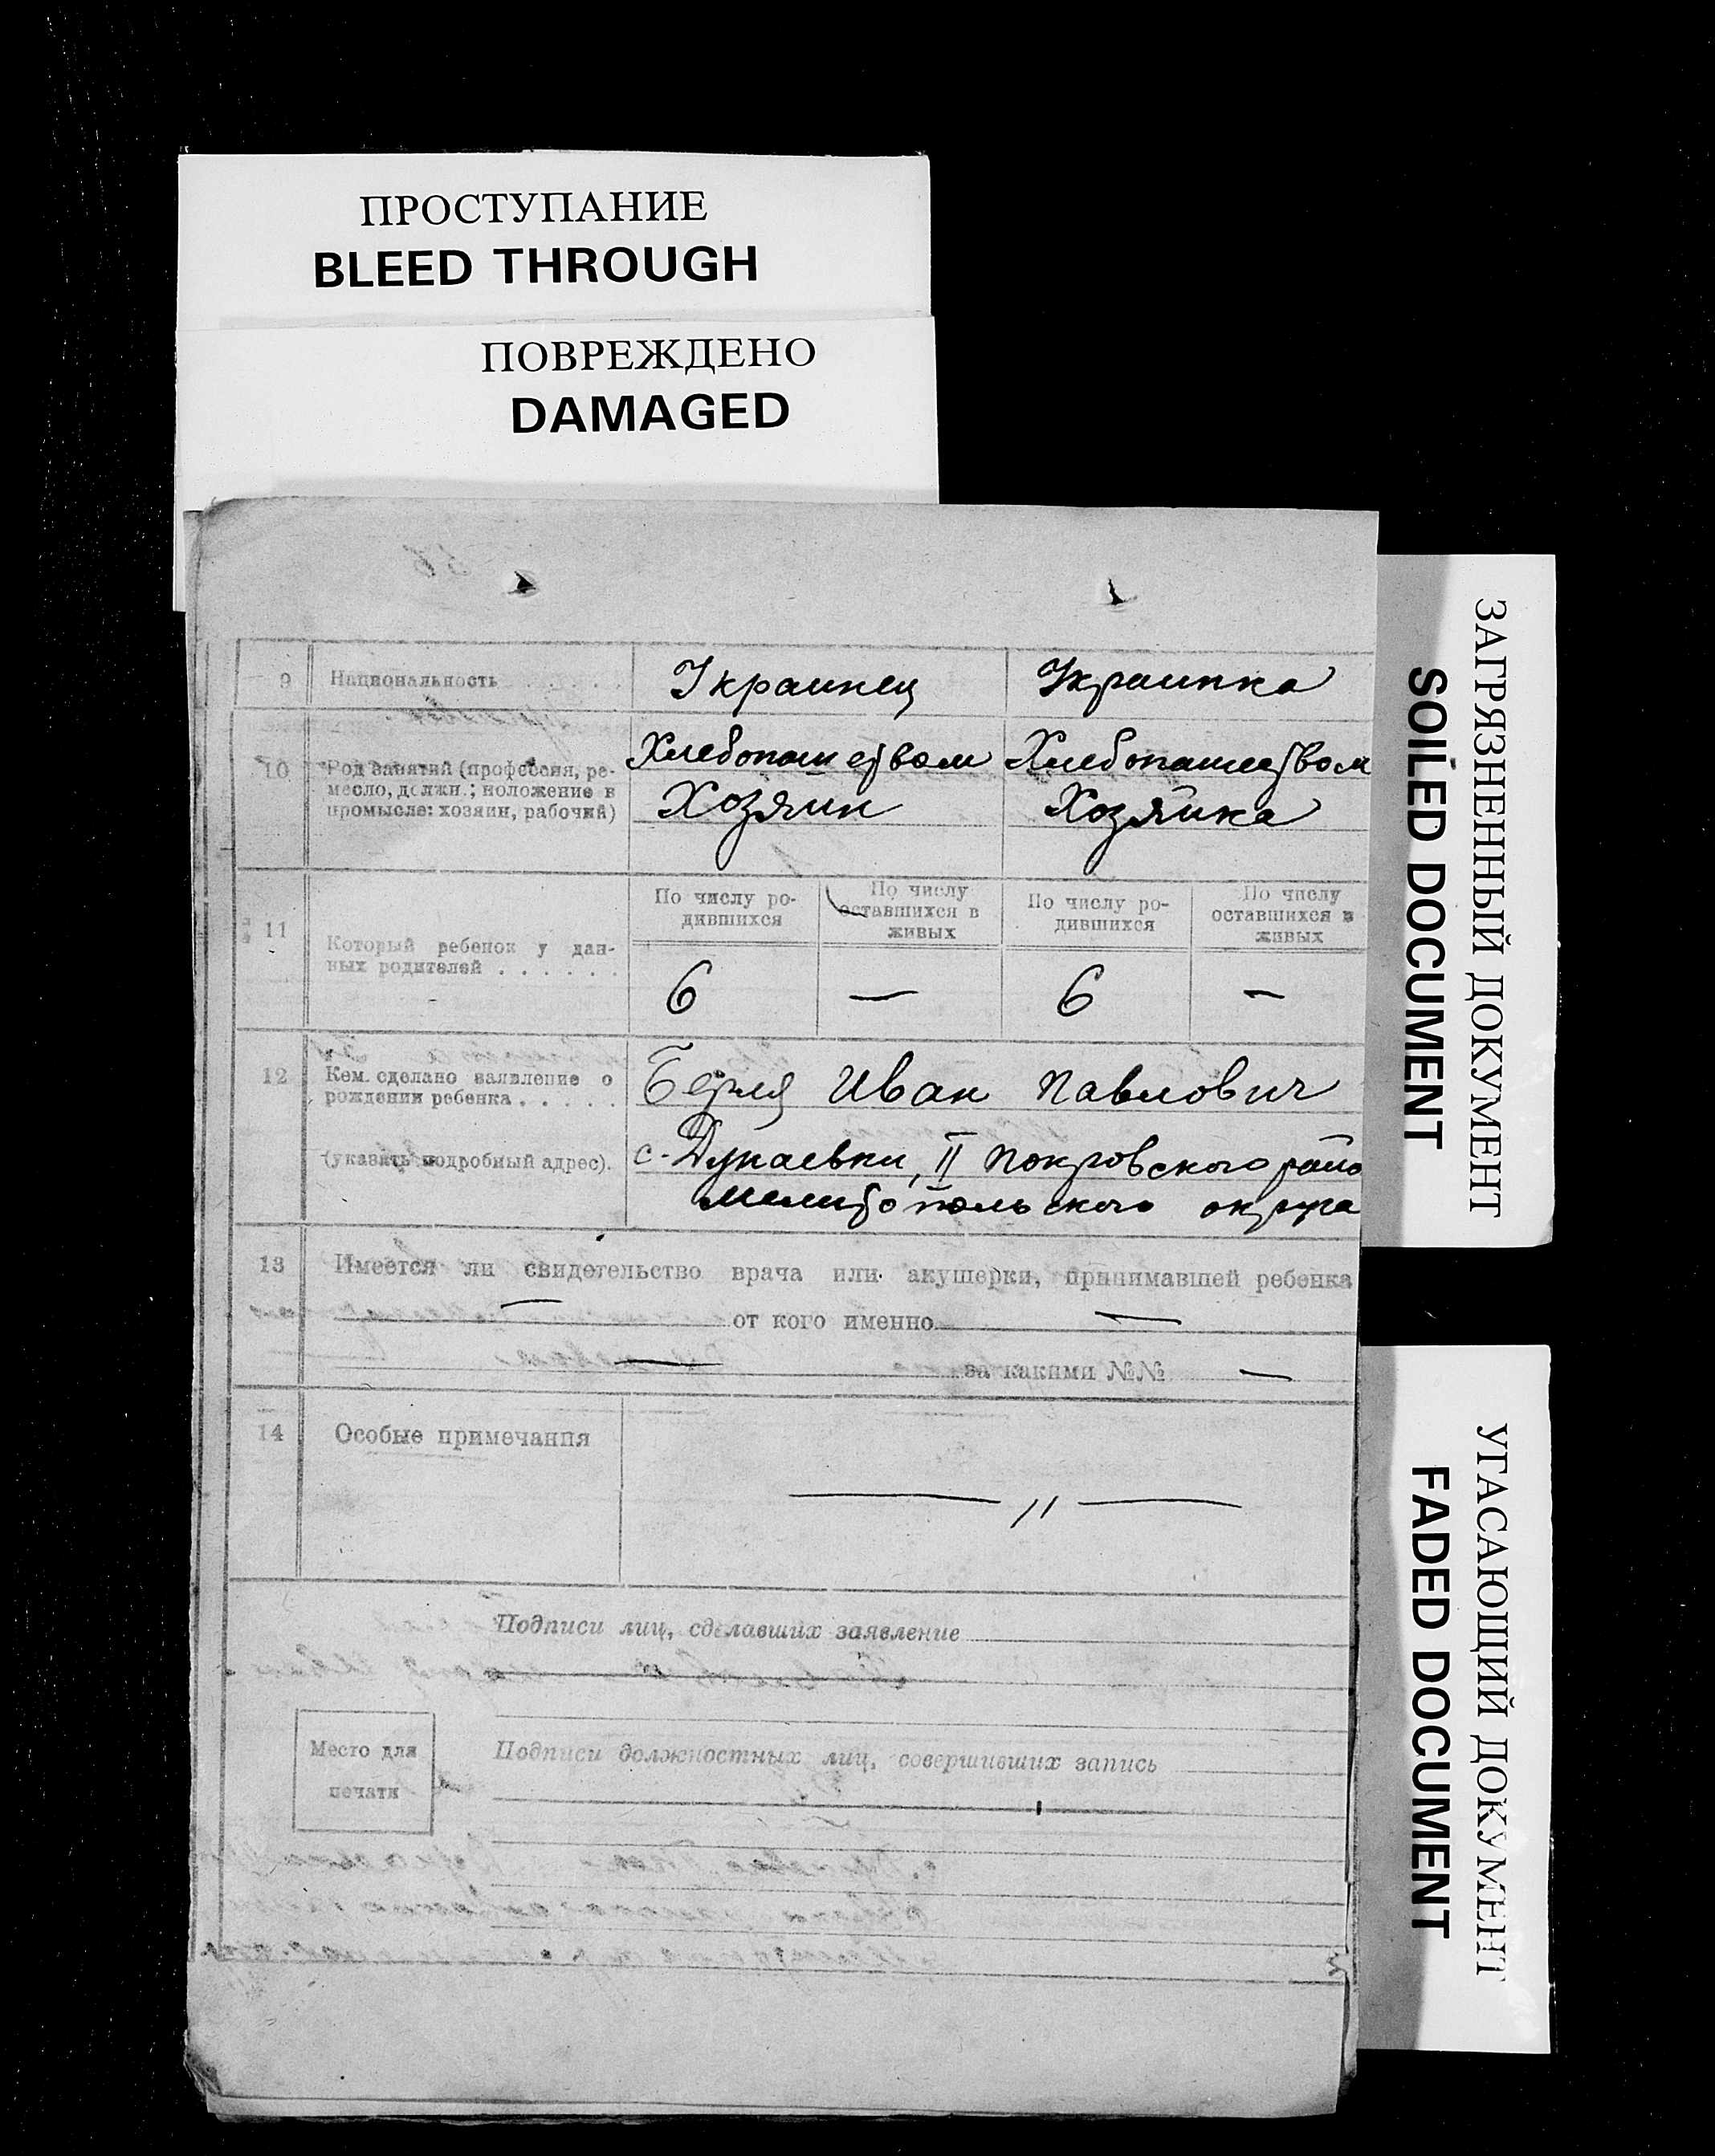 ПРОСТУПАНИЕ
BLEED THROUGH
ПОВРЕЖДЕНО
DAMAGED
9 Национальность . . . . . Украинец Украинка
10 Род занятий (профессия, ре- Хлебопашеством Хлебопашеством
месло, должн.; положение в
промысле: хозяин, рабочий) Хозяин Хозяйка
11 Который ребенок у дан-
ных родителей . . . . . .
По числу ро-
дившихся
По числу
оставшихся в
живых
По числу ро-
дившихся
По числу
оставшихся в
живых
6 — 6 —
12 Кем сделано заявление о
рождении ребенка . . . . .
(указать подробный адрес).
Иван Павлович
с. Дунаевки, II Покровского райо
Мелитопольского округа
13 Имеется ли свидетельство врача или акушерки, принимавшей ребенка
— от кого именно —
— за какими №№ —
14 Особые примечания
— // —
Подписи лиц, сделавших заявление
Место для
печати
Подписи должностных лиц, совершивших запись
ЗАГРЯЗНЕННЫЙ ДОКУМЕНТ
SOILED DOCUMENT
УГАСАЮЩИЙ ДОКУМЕНТ
FADED DOCUMENT